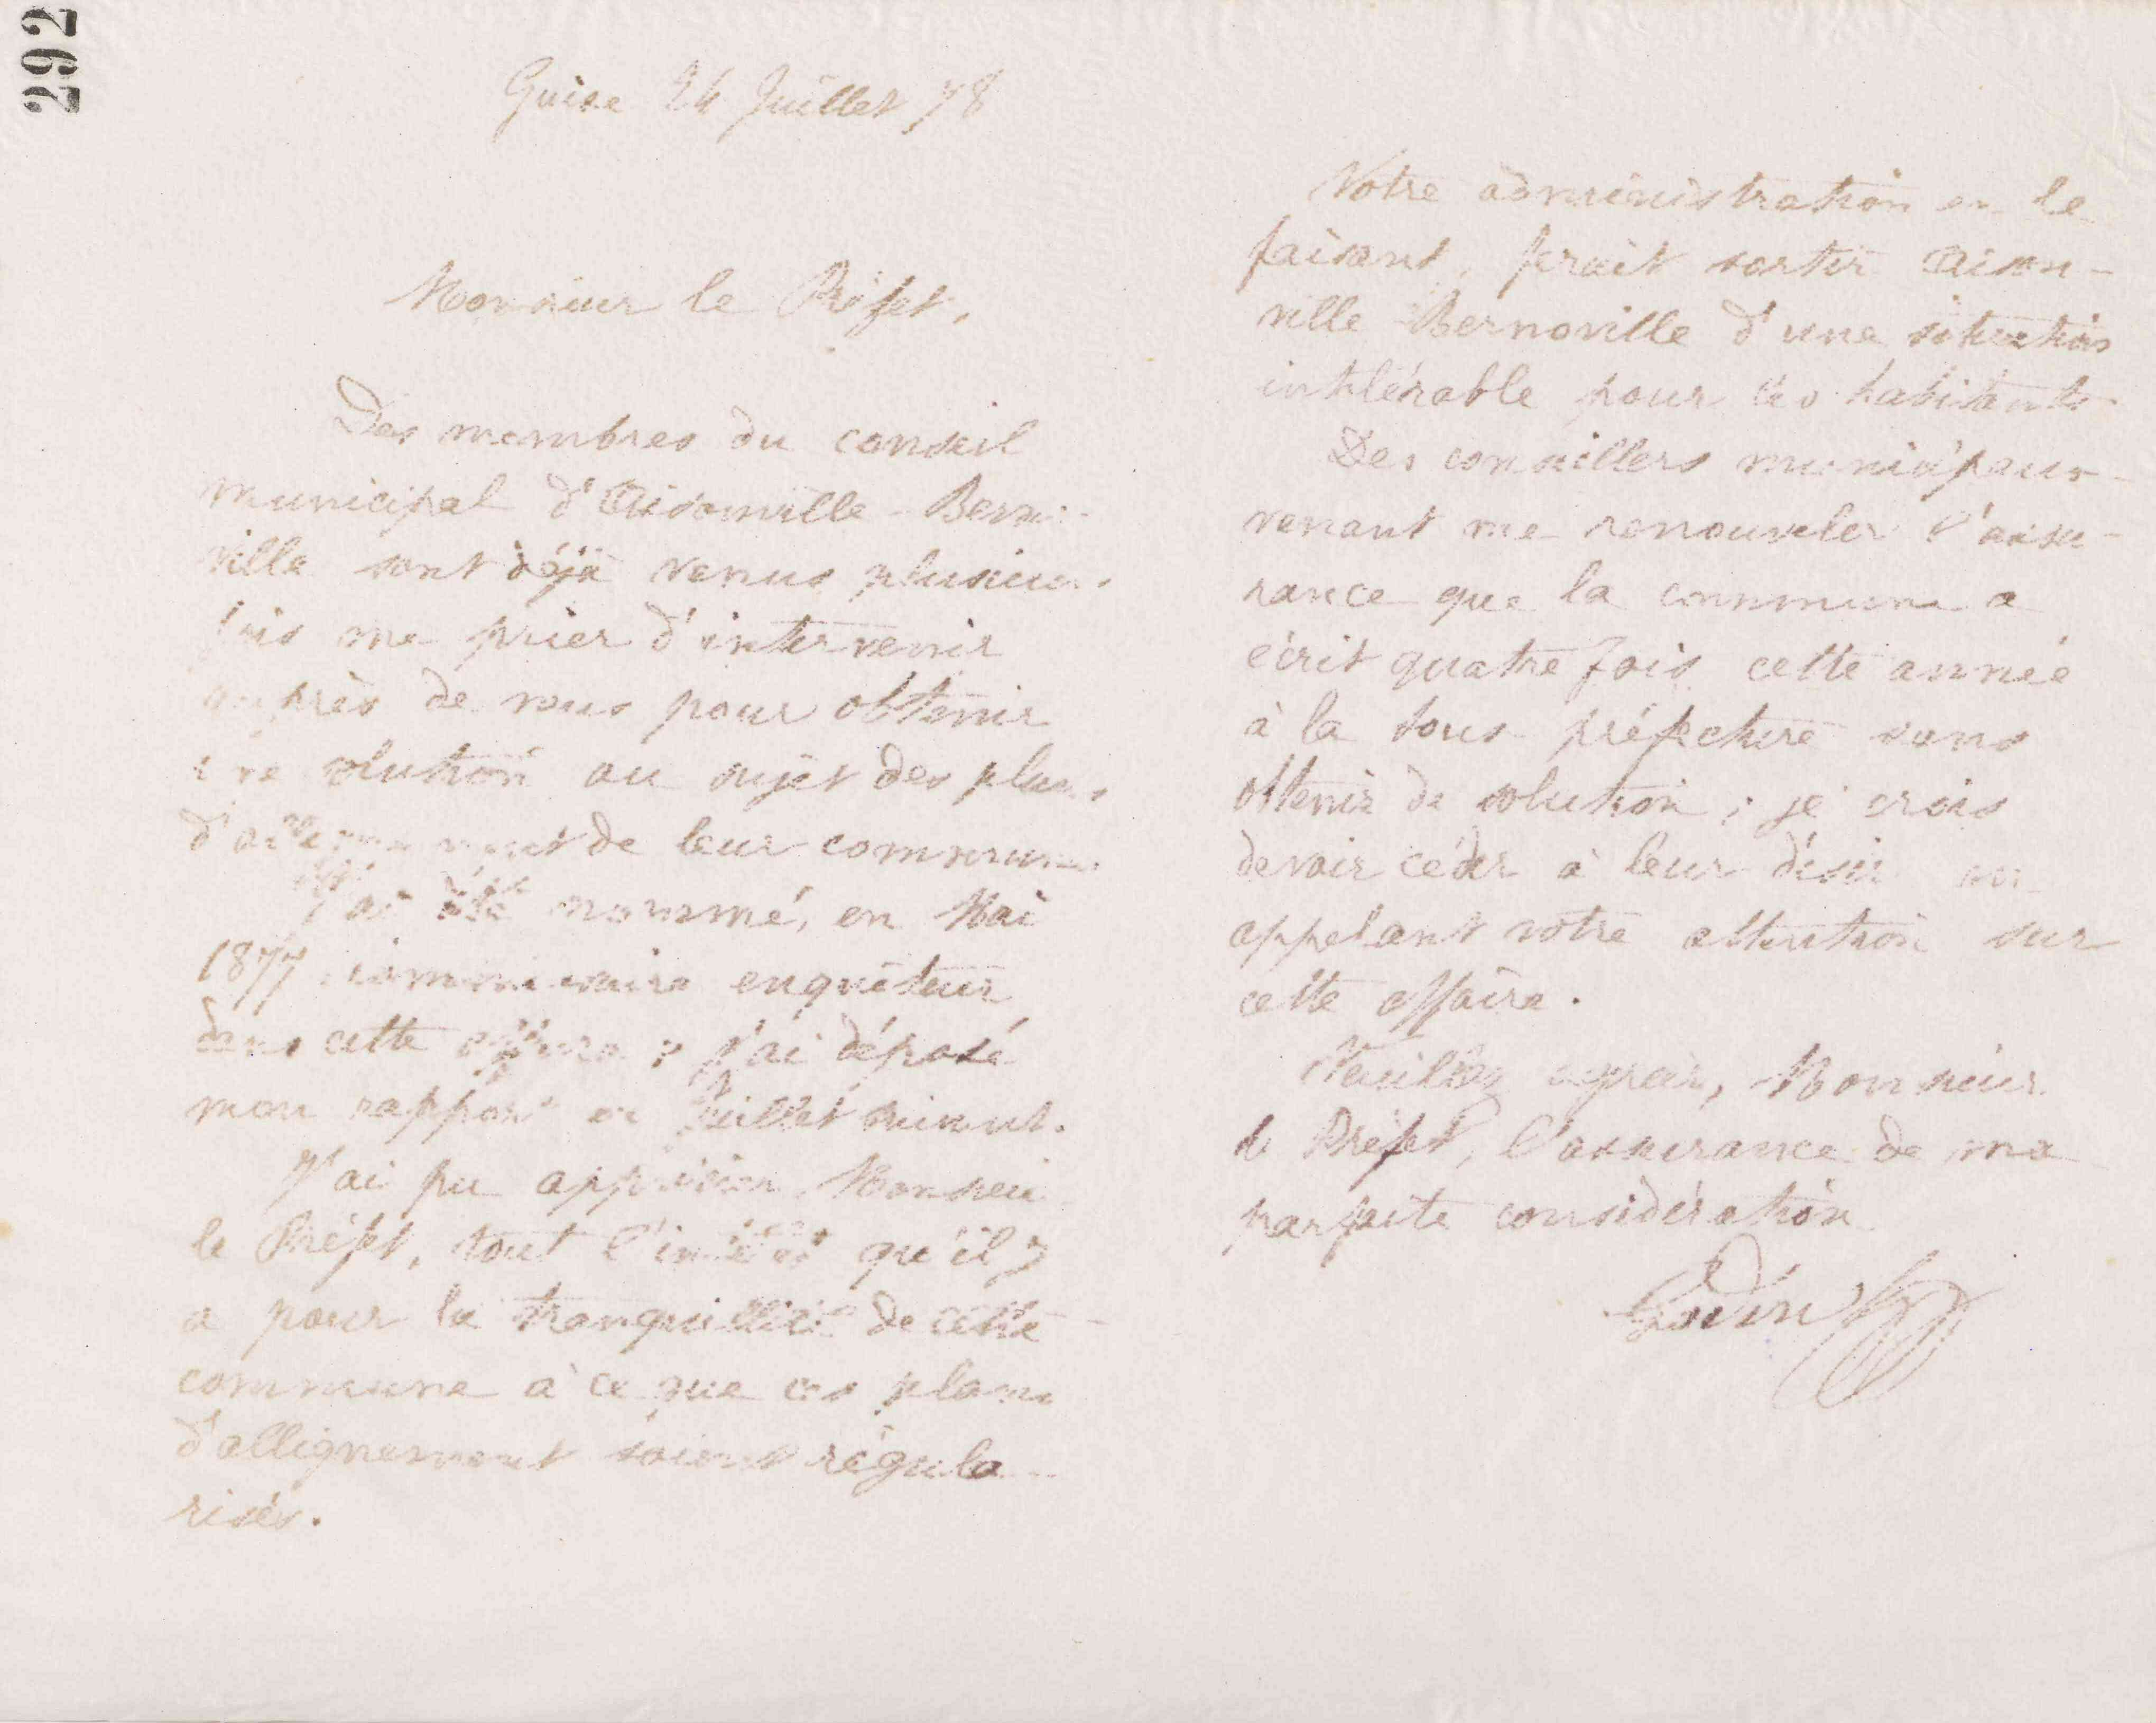 292
Guise 24 Juillet 78
Monsieur le Préfet,
Des membres du conseil
municipal d'Aisonville-Berno-
ville sont déjà venus plusieurs
fois me prier d'intervenir
auprès de vous pour obtenir
une solution au sujet des plans
d'allignement de leur commune.
J'ai été nommé, en Mai
1877, commissaire enquêteur
dans cette affaire ; j'ai déposé
mon rapport en Juillet suivant.
J'ai pu apprécier, Monsieur
le Préfet, tout l'intérêt qu'il y
a pour la tranquillité de cette
commune à ce que ces plans
d'allignement soient régula-
risés.
Votre administration en le
faisant, ferait sortir Aison-
ville Bernoville d'une situation
intolérable pour ses habitants.
Des conseillers municipaux
venant me renouveler l'assu-
rance que la commune a
écrit quatre fois cette année
à la sous-préfecture sans
obtenir de solution ; je crois
devoir céder à leur désir en
appelant votre attention sur
cette affaire.
Veuillez agréer, Monsieur
le Préfet, l'assurance de ma
parfaite considération
Godin